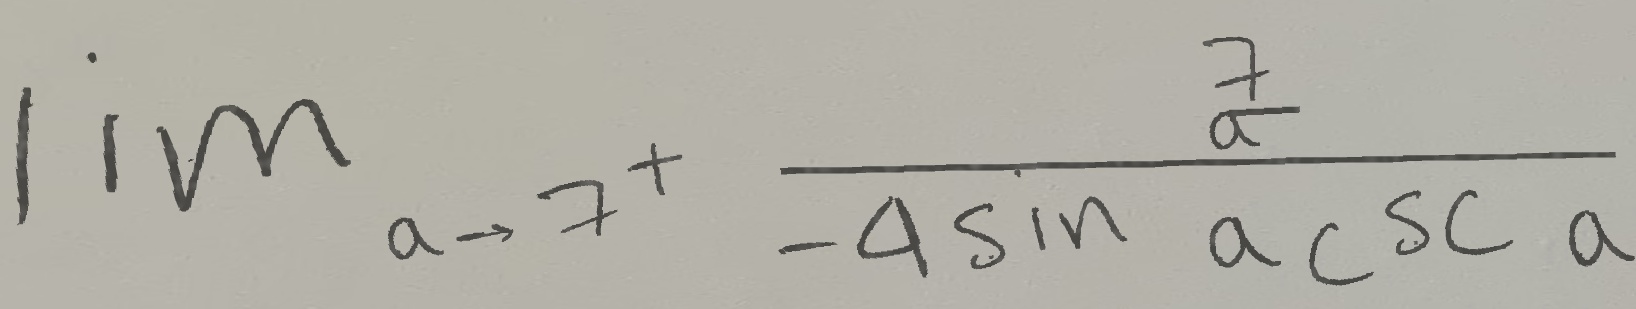 \lim_{a \to 7^+} \frac{\frac{7}{a}}{-4 \sin a \csc a}